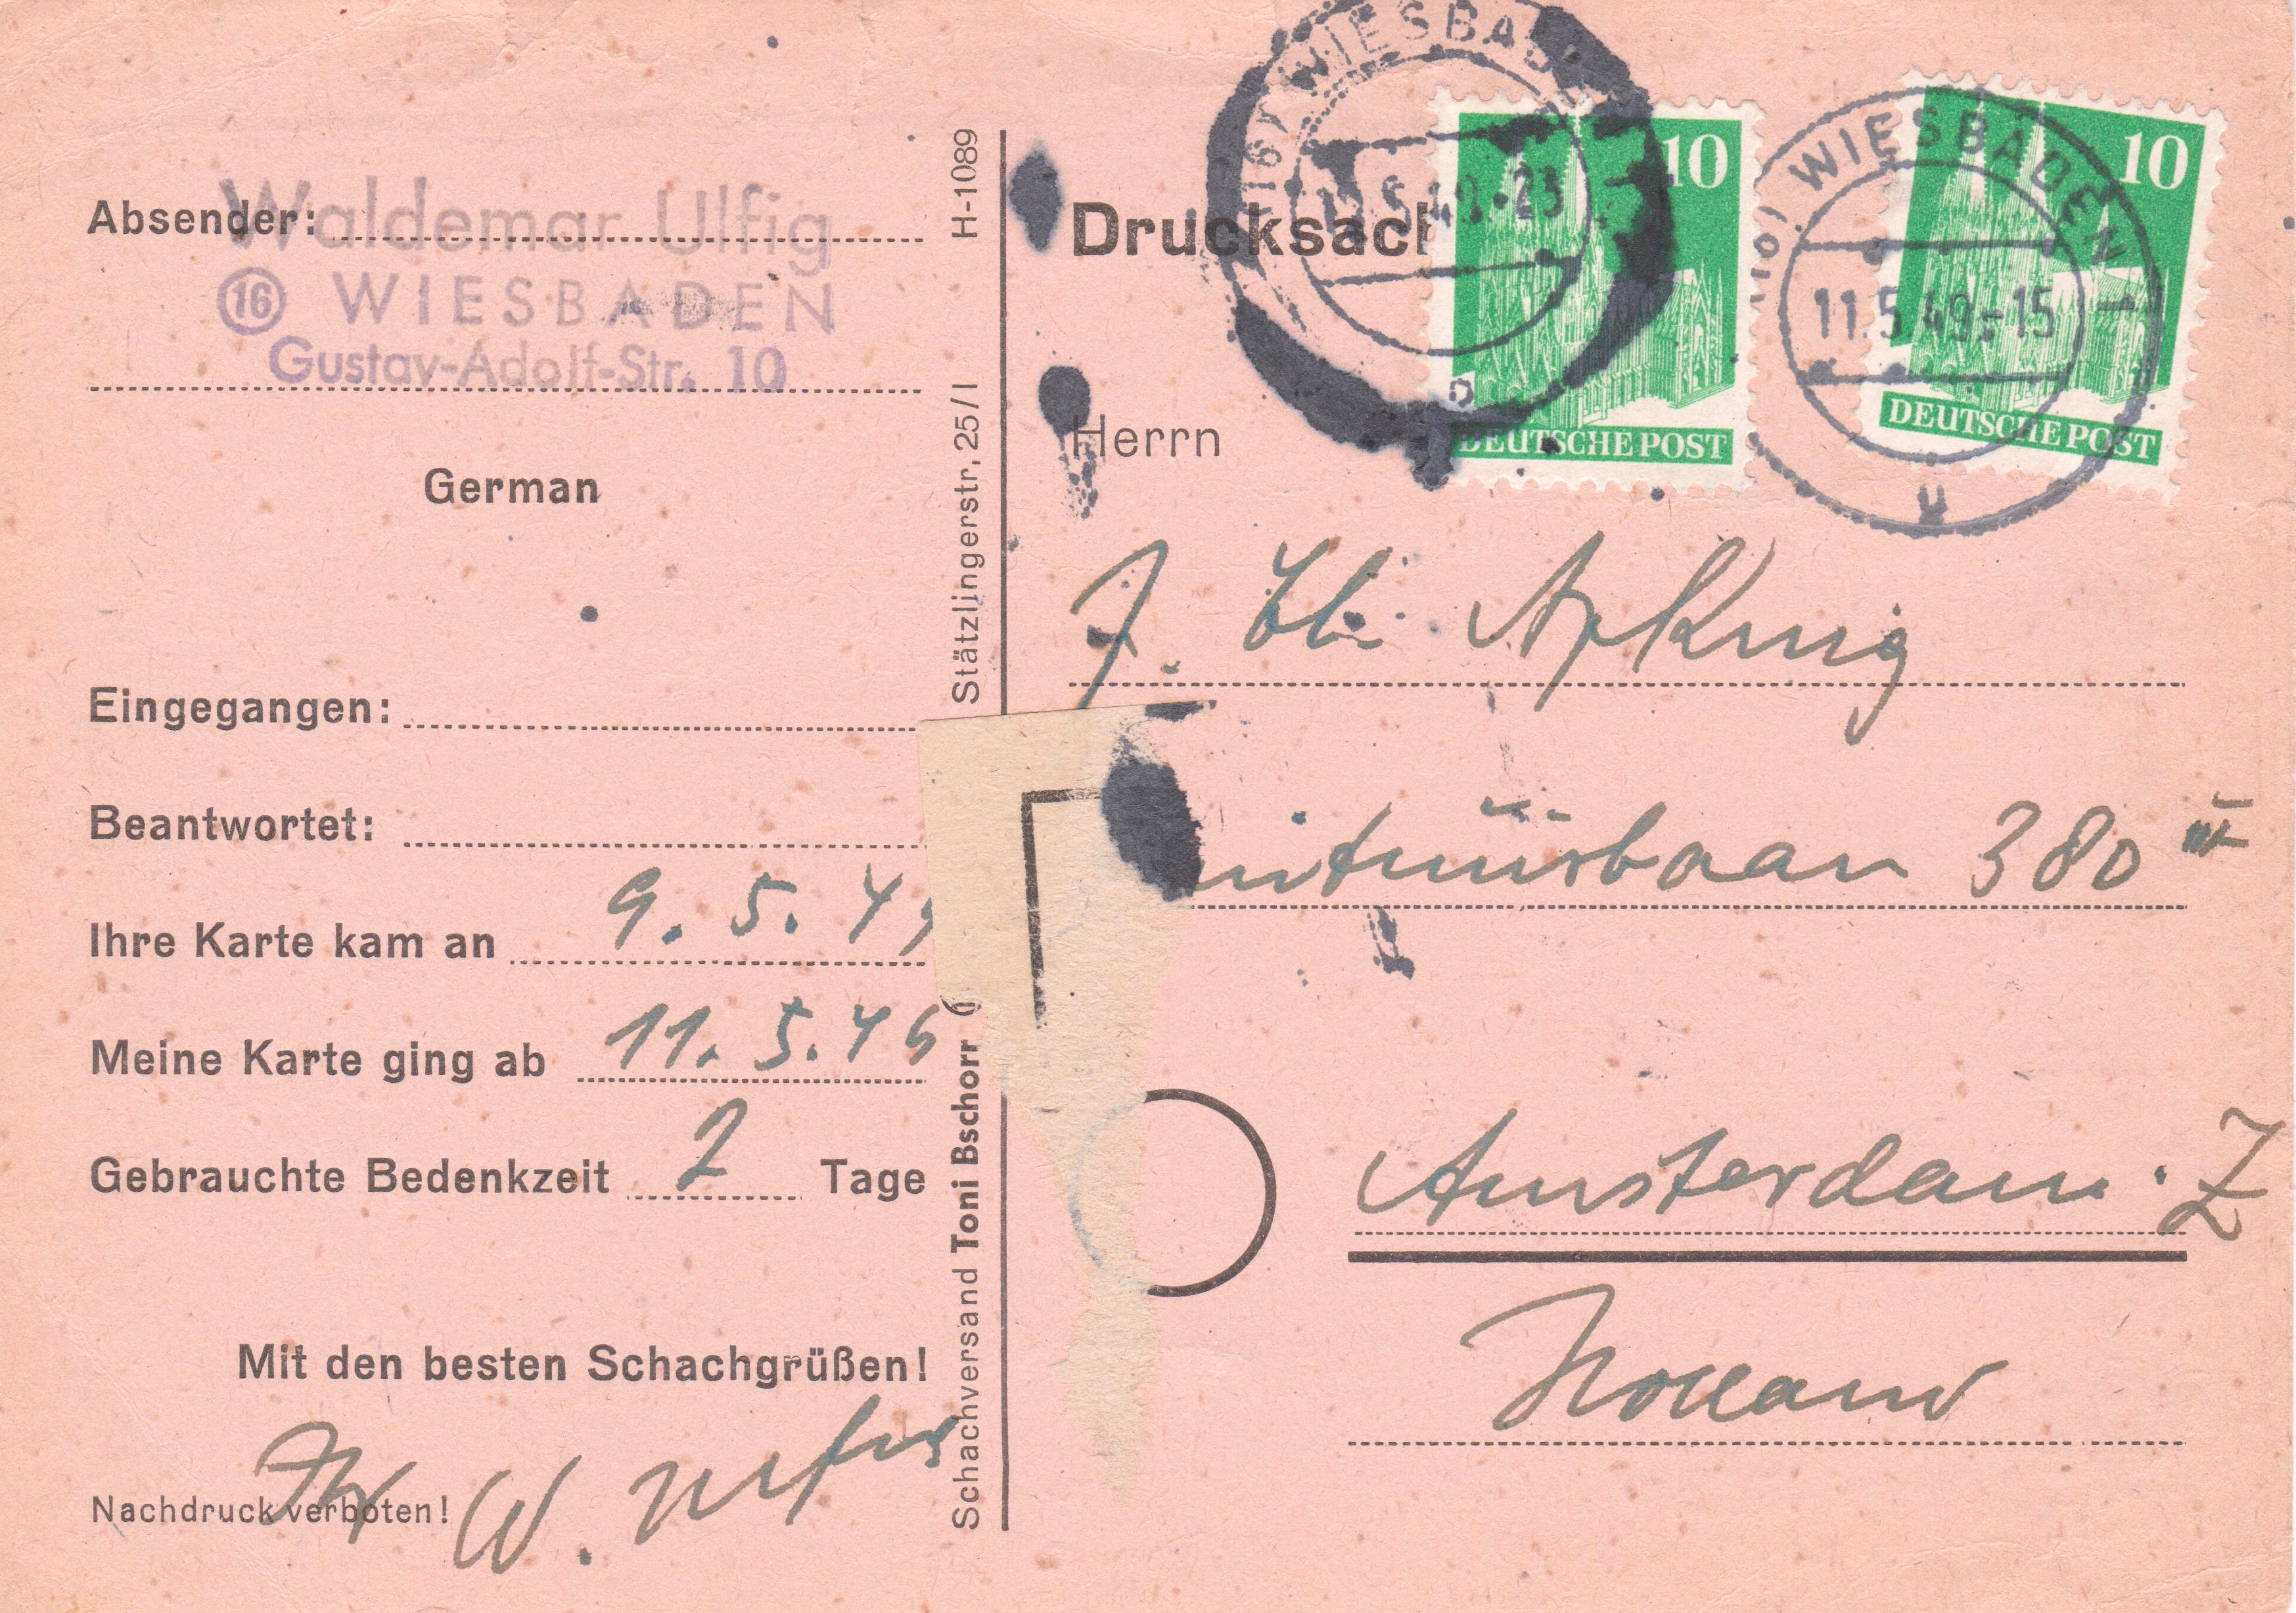 Absender:
Waldemar Ulfig
16 WIESBADEN
Gustav-Adolf-Str. 10
German
Eingegangen:
Beantwortet:
Ihre Karte kam an 9. 5. 49
Meine Karte ging ab 11. 5. 49
Gebrauchte Bedenkzeit 2 Tage
Mit den besten Schachgrüßen!
Ihr W. Ulfig
Nachdruck verboten!
Schachversand Toni Bschorr
Stätzlingerstr. 25/I
H-1089
Drucksach
(16) WIESBADEN
23
10
DEUTSCHE POST
(16) WIESBADEN 1
11.5.49.-15
u
10
DEUTSCHE POST
Herrn
J.
380 III
Amsterdam. Z
Holland